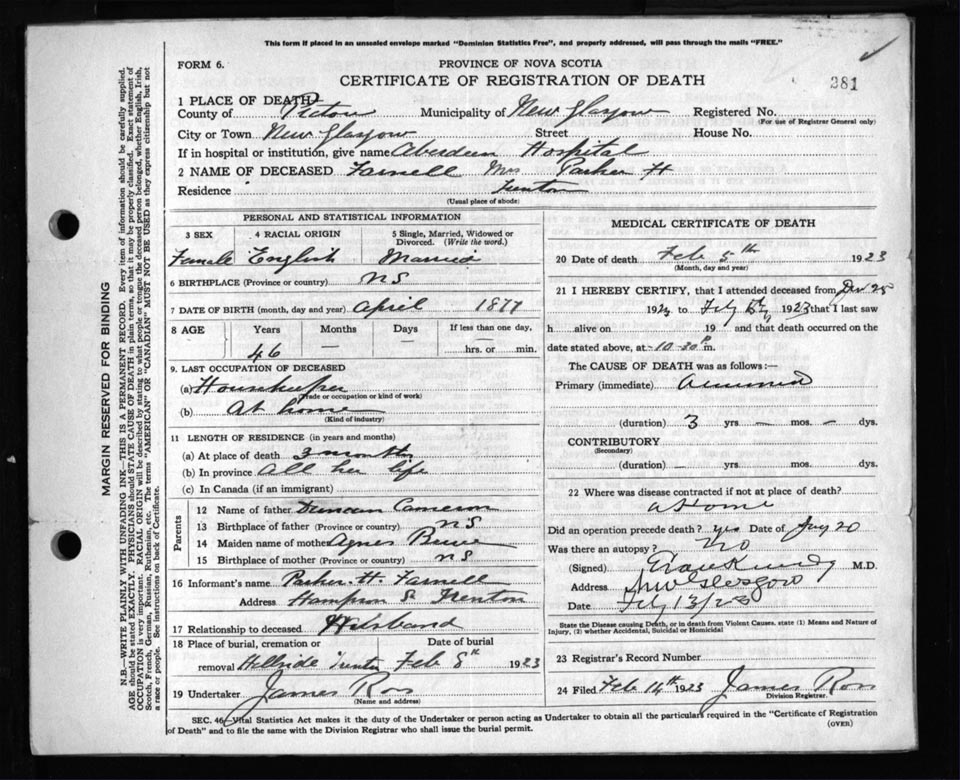 This form if placed in an unsealed envelope marked "Dominion Statistics Free", and properly addressed, will pass through the mails "FREE."
FORM 6.
PROVINCE OF NOVA SCOTIA
CERTIFICATE OF REGISTRATION OF DEATH
281
1 PLACE OF DEATH
County of Pictou Municipality of New Glasgow Registered No.
(For use of Registrar General only)
City or Town New Glasgow Street House No.
If in hospital or institution, give name Aberdeen Hospital
2 NAME OF DECEASED Farnell Mrs Parker H
Residence Trenton
(Usual place of abode)
PERSONAL AND STATISTICAL INFORMATION
3 SEX 4 RACIAL ORIGIN 5 Single, Married, Widowed or Divorced. (Write the word.)
Female English Married
6 BIRTHPLACE (Province or country) NS
7 DATE OF BIRTH (month, day and year) April 1877
8 AGE Years Months Days If less than one day,
46 — — hrs. or min.
9. LAST OCCUPATION OF DECEASED
(a) Housekeeper
(Trade or occupation or kind of work)
(b) At home
(Kind of industry)
11 LENGTH OF RESIDENCE (in years and months)
(a) At place of death 3 months
(b) In province All her life
(c) In Canada (if an immigrant)
Parents
12 Name of father Duncan Cameron
13 Birthplace of father (Province or country) NS
14 Maiden name of mother Agnes
15 Birthplace of mother (Province or country) NS
16 Informant's name Parker H. Farnell
Address Hampson St Trenton
17 Relationship to deceased Husband
18 Place of burial, cremation or Date of burial
removal Hillside Trenton Feb 8th 1923
19 Undertaker James Ross
(Name and address)
MEDICAL CERTIFICATE OF DEATH
20 Date of death Feb 5th 1923
(Month, day and year)
21 I HEREBY CERTIFY, that I attended deceased from Dec 25
192 to Feby 5th 1923 that I last saw
h alive on 19 and that death occurred on the
date stated above, at 10-30 P m.
The CAUSE OF DEATH was as follows:—
Primary (immediate)
(duration) 3 yrs. — mos. — dys.
CONTRIBUTORY
(Secondary)
(duration) — yrs. mos. dys.
22 Where was disease contracted if not at place of death?
at Home
Did an operation precede death? yes Date of Jany 20
Was there an autopsy? No
(Signed) M.D.
Address New Glasgow
Date Feby 13/23
State the Disease causing Death, or in death from Violent Causes, state (1) Means and Nature of Injury, (2) whether Accidental, Suicidal or Homicidal
23 Registrar's Record Number
24 Filed Feb 14th 1923 James Ross
Division Registrar.
SEC. 46—Vital Statistics Act makes it the duty of the Undertaker or person acting as Undertaker to obtain all the particulars required in the "Certificate of Registration
of Death" and to file the same with the Division Registrar who shall issue the burial permit.
(OVER)
MARGIN RESERVED FOR BINDING
N.B.—WRITE PLAINLY WITH UNFADING INK—THIS IS A PERMANENT RECORD. Every item of information should be carefully supplied.
AGE should be stated EXACTLY. PHYSICIANS should STATE CAUSE OF DEATH in plain terms, so that it may be properly classified. Exact statement of
OCCUPATION is very important. RACIAL ORIGIN will be described by stating to what people or tongue the deceased person belonged, whether English, Irish,
Scotch, French, German, Russian, Ruthenian, etc. The terms "AMERICAN" OR "CANADIAN" MUST NOT BE USED as they express citizenship but not
a race or people. See instructions on back of Certificate.